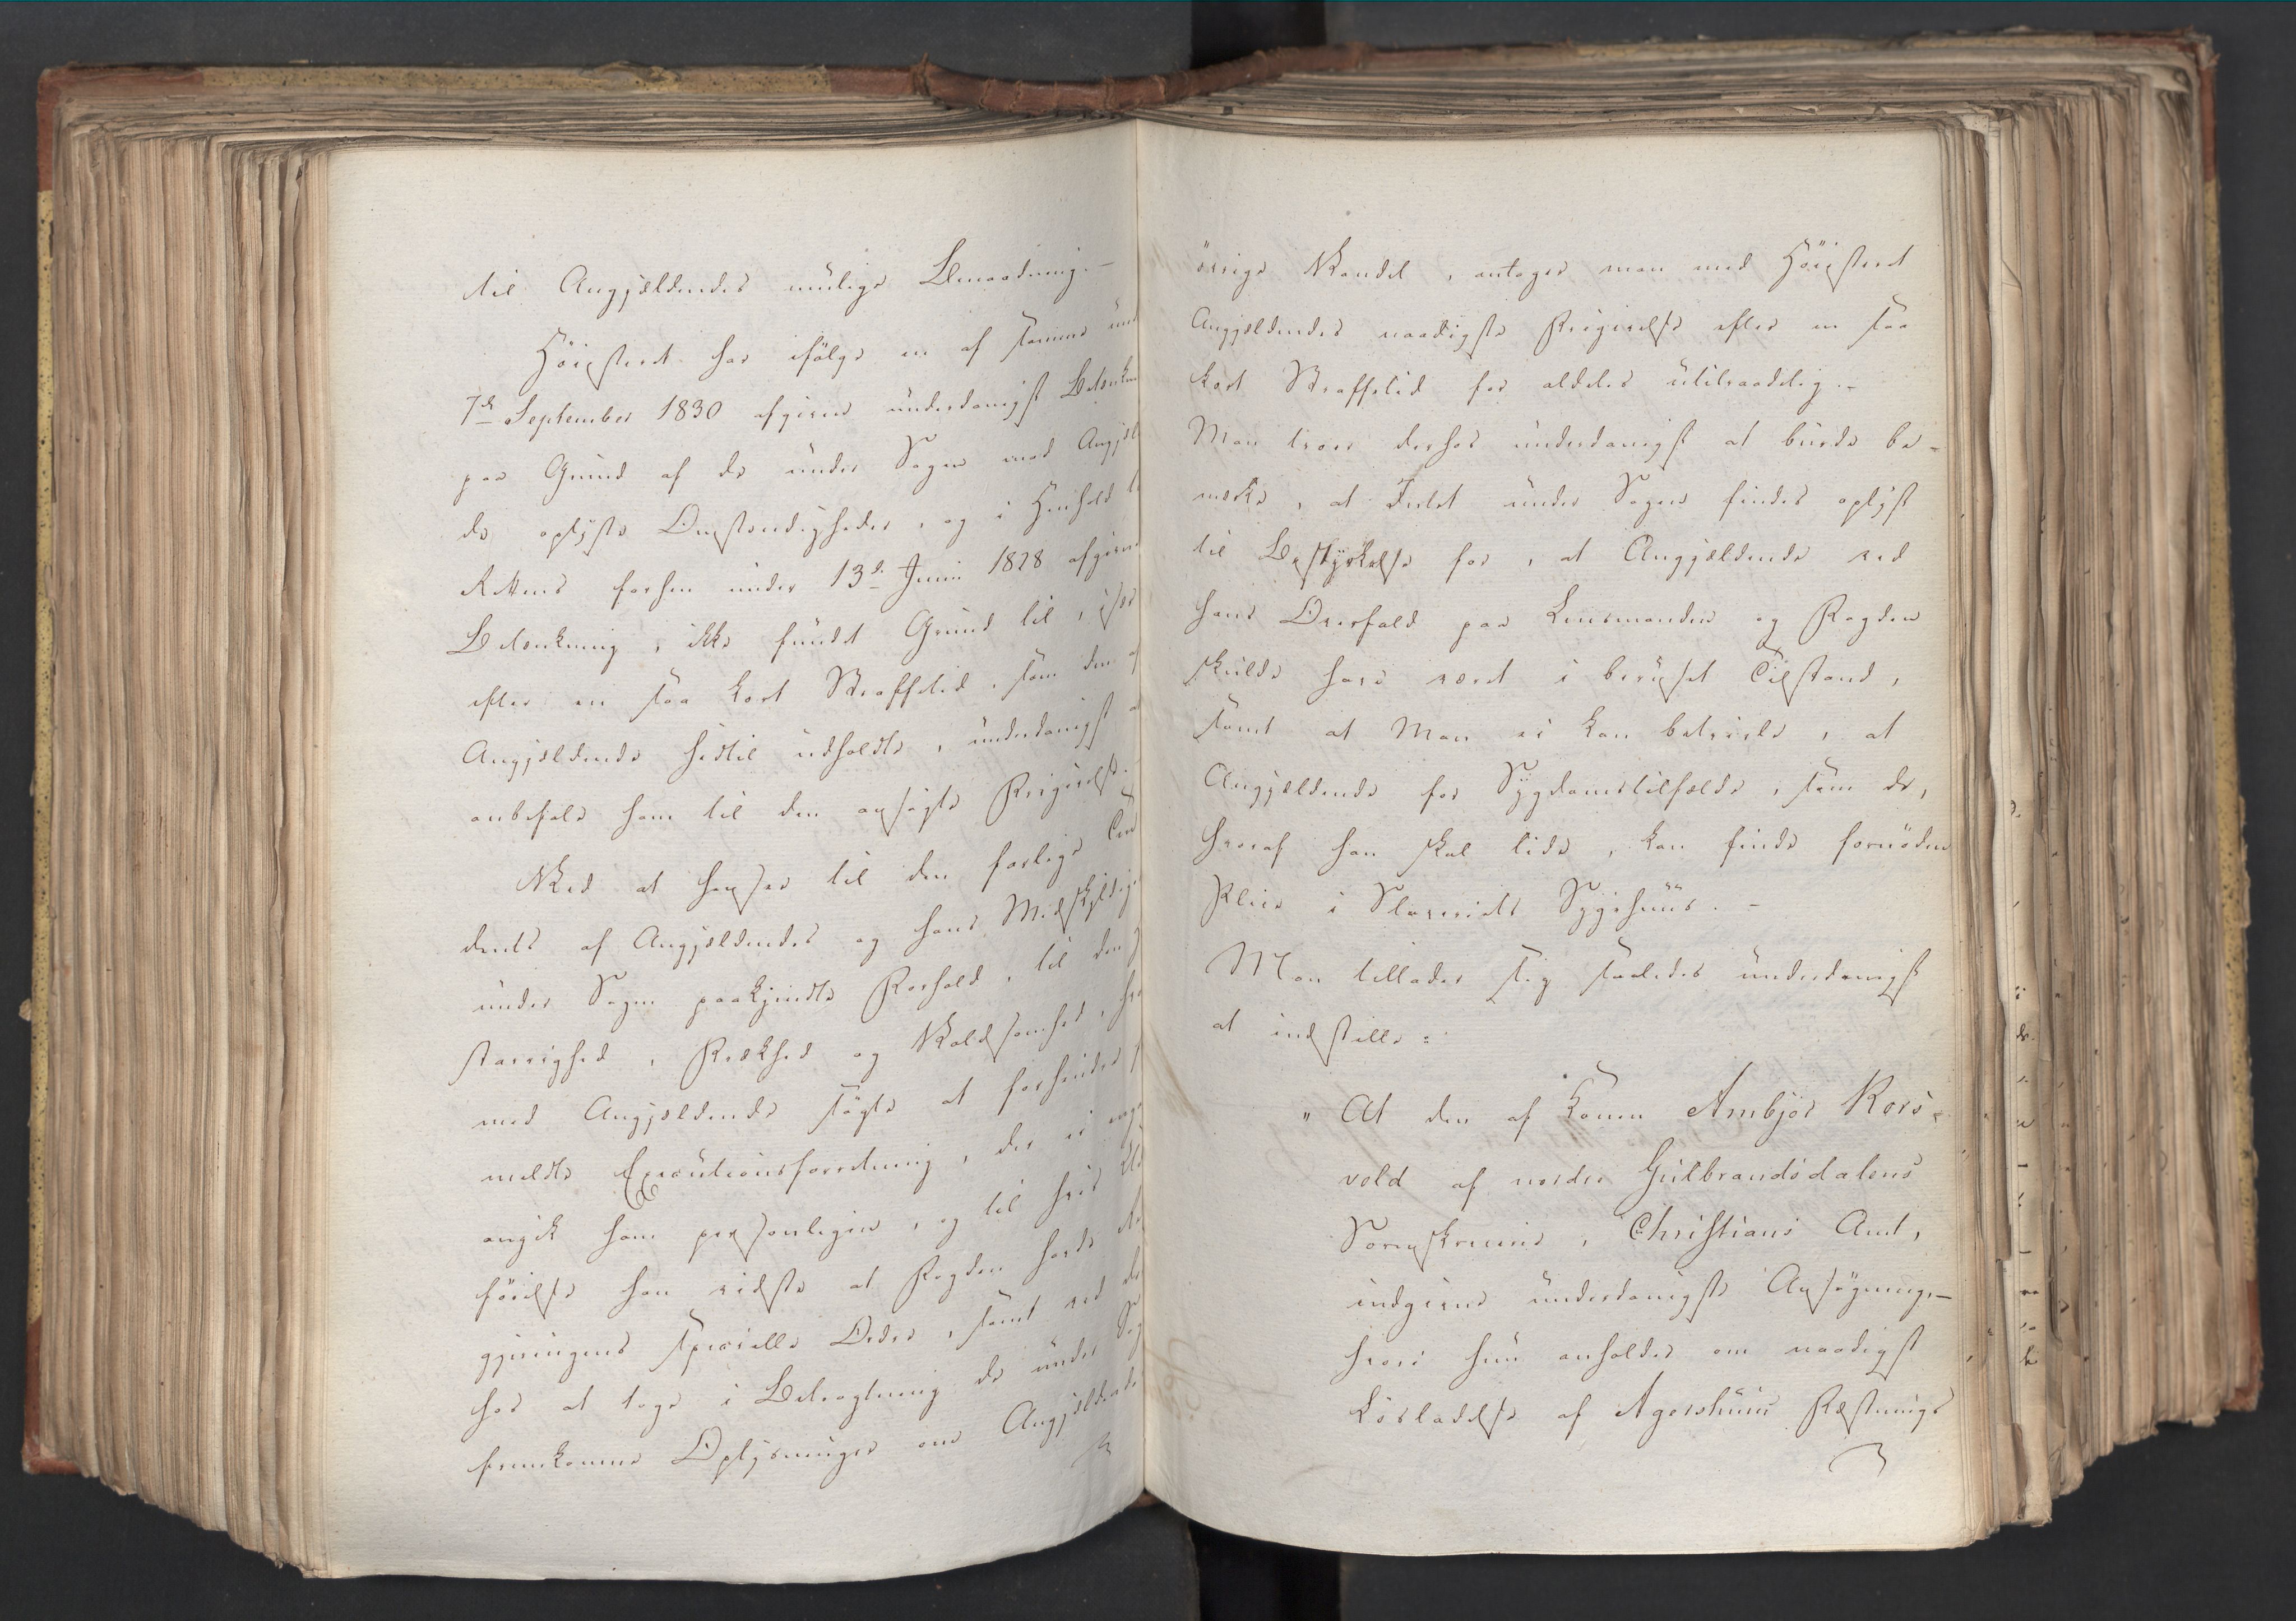 til Angjældendes mulige Benaadning.-
Høiesteret har ifølge en af samme und
7de September 1830 afgiven underdanigst Betænkn
paa Grund af de under Sagen mod Angjæl
de oplyste Omstændigheder, og i Henhold ti
Rettens forhen under 13de Junii 1828 afgivne
Betænkning, ikke fundet Grund til, især
efter en saa kort Straffetid, som den af
Angjældende hidtil udholdte, underdanigst at
anbefale ham til den ansøgte Frigivelse.
Ved at hensee til den farlige Ten
dents af Angjældendes og hans Medskyldige
under Sagen paakjendte Forhold, til den
stærrighed, Frækhed og Voldsomhed, hvor
med Angjældende søgte at forhindre
meldte Executionsforretning, der ei
angik ham personligen, og til hvis Ud
førelse han vidste at Fogden havde Re
gjeringens specielle Ordre, samt ved der
hos at tage i Betragtning de under Sag
fremkomne Oplysninger om Angjældende
øvrige Vandel, antager man med Høiesteret
Angjældendes naadigste Frigivelse efter en saa
kort Straffetid for aldeles utilraadelig.-
Man troer derhos underdanigst at burde be-
mærke, at Intet under Sagen findes oplyst
til Bestyrkelse for, at Angjældende ved
hans Overfald paa Lensmanden og Fogden
skulde have været i beruset Tilstand,
samt at Man ei kan betvivle, at
Angjældende for Sygdomstilfælde, som de,
hvoraf han skal lide, kan finde fornøden
Pleie i Slaveriets Sygehuus.-
Man tillader sig saaledes underdanigst
at indstille:
"At den af Konen Ambjør Kors-
vold af nordre Gulbrandsdalens
Sorenskriverie, Christians Amt,
indgivne underdanigste Ansøgning,-
hvori hun anholder om naadigst
Løsladelse af Agershuus Fæstnings